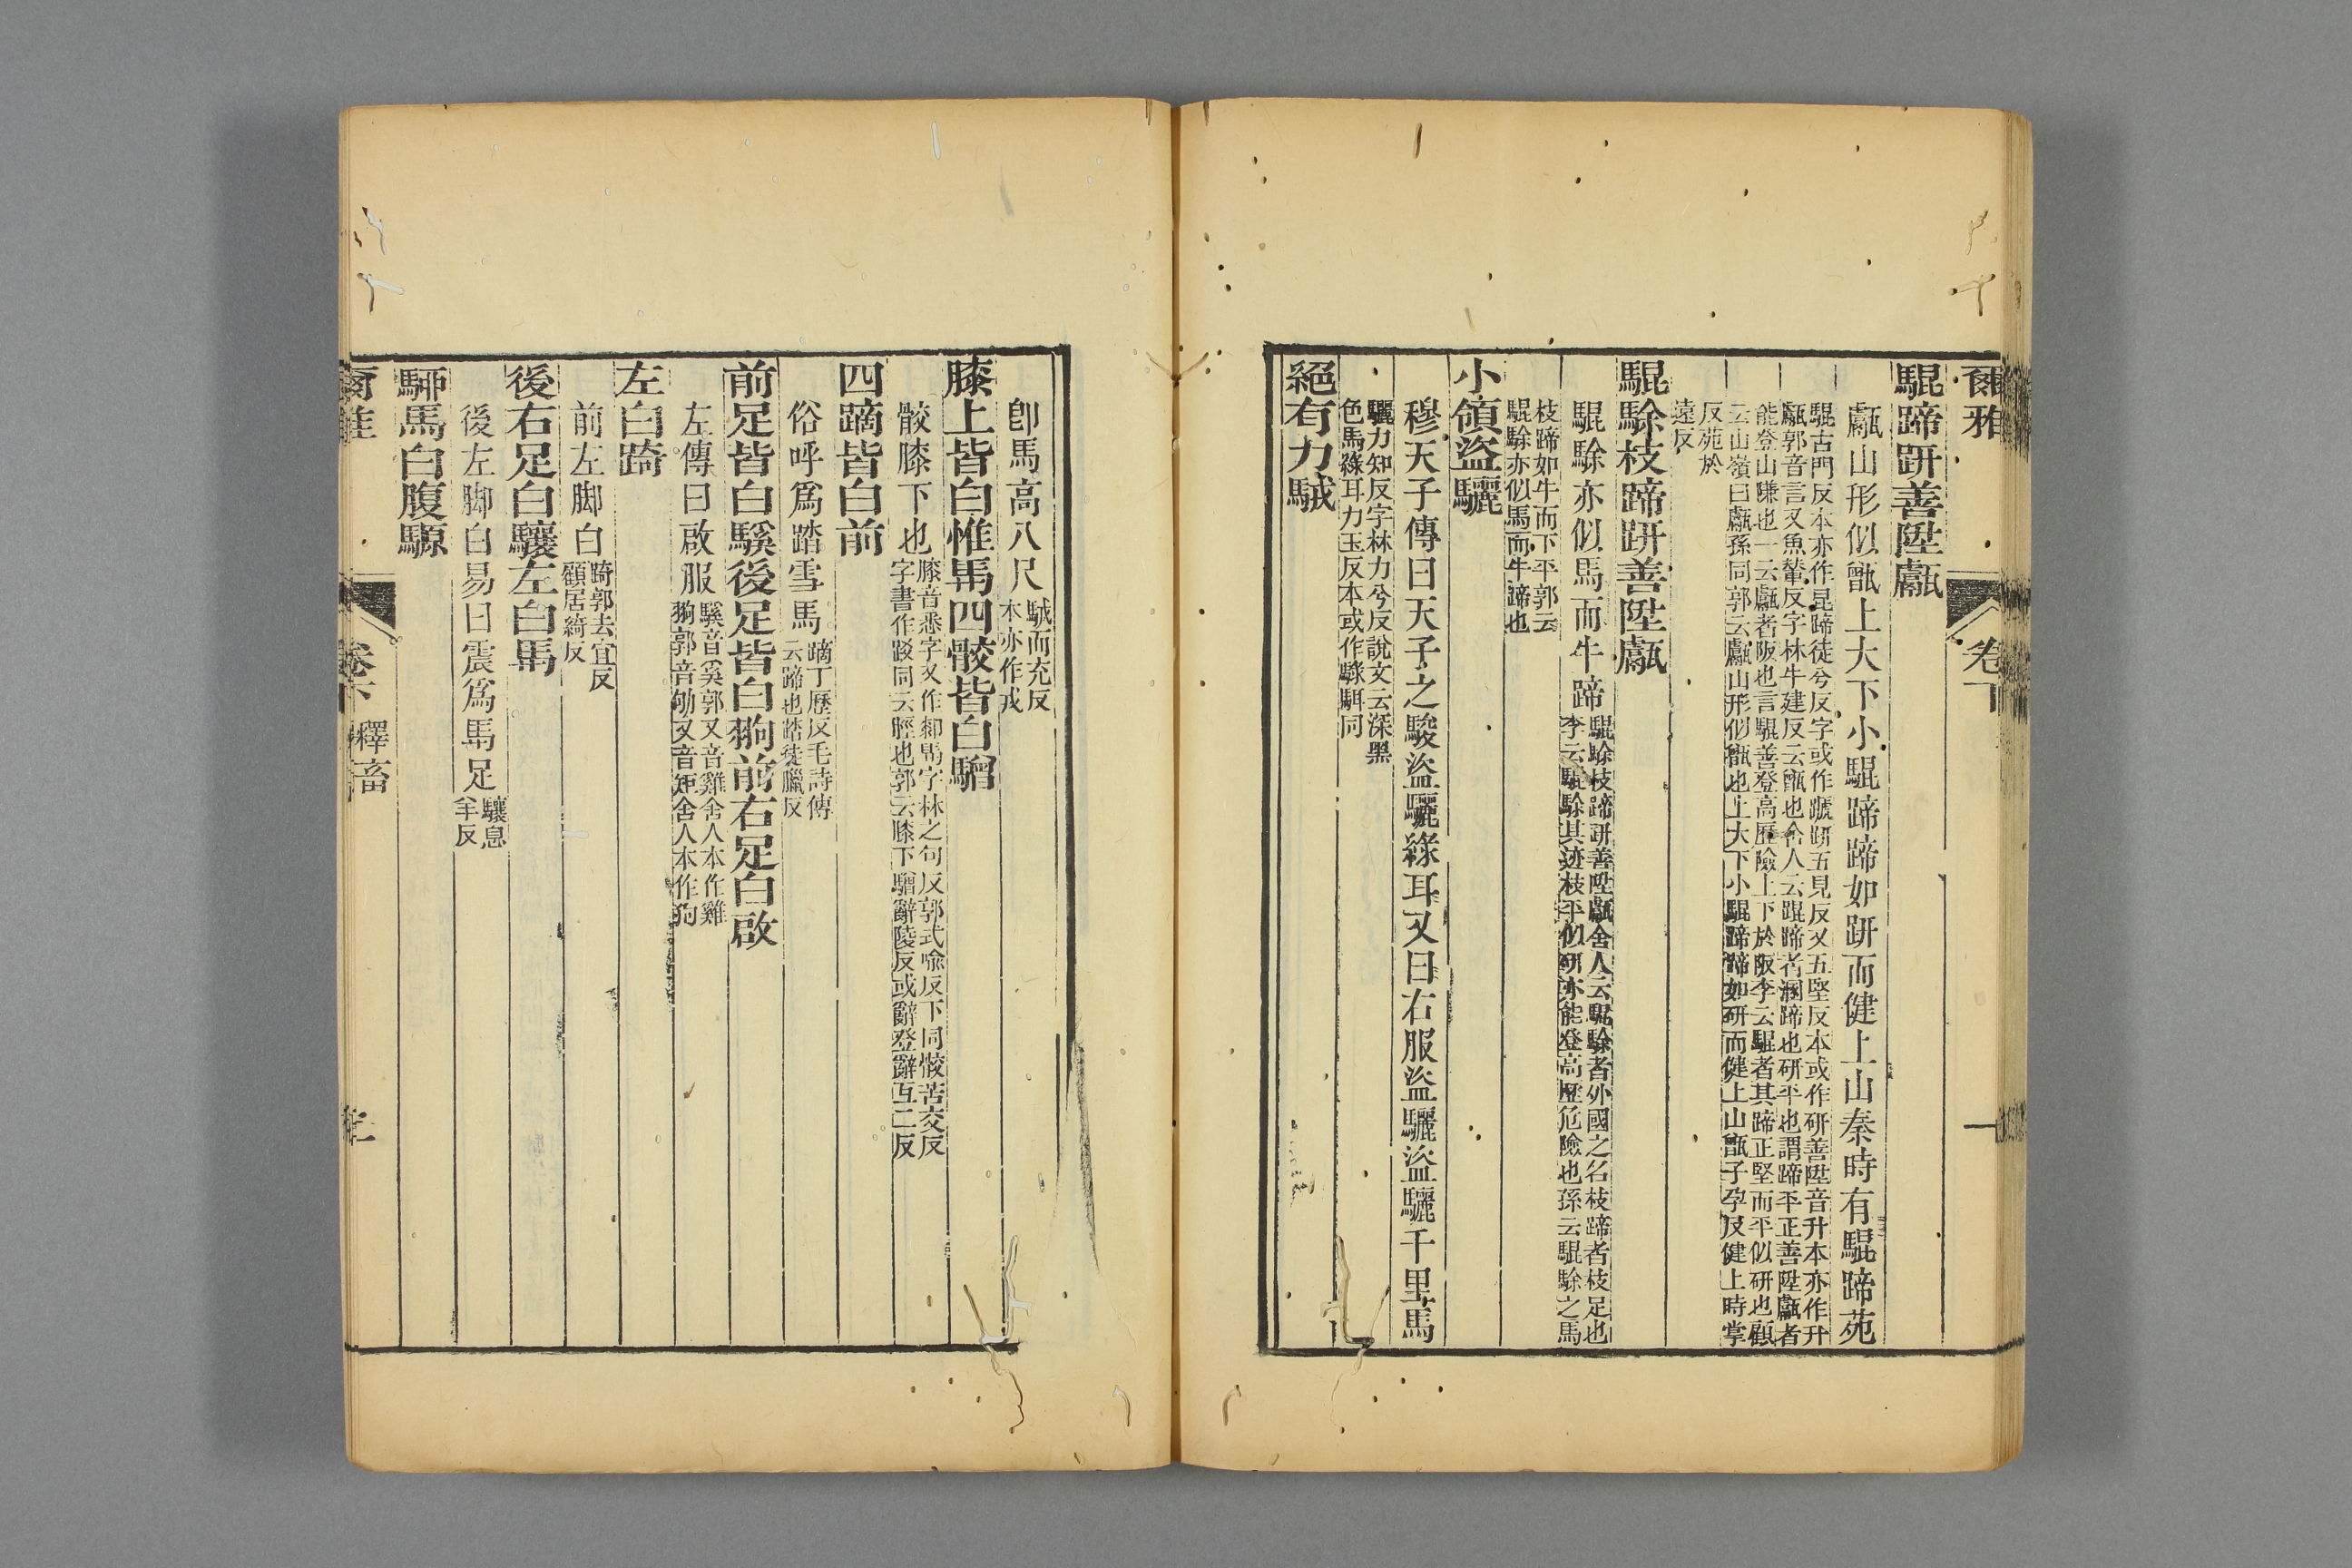 爾雅 卷下 一
騉蹄趼善陞甗
甗山形似甑上大下小騉蹄蹄如趼而健上山秦時有騉蹄苑
騉古門反本亦作昆蹄徒兮反字或作蹏趼五見反又五堅反本或作研善陞音升本亦作升
甗郭音言又魚輦反字林牛建反云甑也舍人云騉蹄者溷蹄也研平也謂蹄平正善陞甗者
能登山隒也一云甗者阪也言騉善登高歷險上下於阪李云騉者其蹄正堅而平似研也顧
云山嶺曰甗孫同郭云甗山形似甑也上大下小騉蹄蹄如研而健上山甑子孕反健上時掌
反苑於
遠反
騉駼枝蹄趼善陞甗
騉駼亦似馬而牛蹄
騉駼枝蹄趼善陞甗舍人云騉駼者外國之名枝蹄者枝足也
李云騉駼其迹枝平似研亦能登高歷危險也孫云騉駼之馬
枝蹄如牛而下平郭云
騉駼亦似馬而牛蹄也
小領盜驪
穆天子傳曰天子之駿盜驪綠耳又曰右服盜驪盜驪千里馬
驪力知反字林力兮反說文云深黑
色馬綠耳力玉反本或作騄駬同
絕有力駥
卽馬高八尺
駥而充反
本亦作戎
膝上皆白惟馵四骹皆白驓
骹膝下也
膝音悉字又作䣛馵字林之句反郭式喩反下同骹苦交反
字書作跤同云脛也郭云膝下驓辭陵反或辭登辭亙二反
四蹢皆白前
俗呼爲踏雪馬
蹢丁歷反毛詩傳
云蹄也踏徒臘反
前足皆白騱後足皆白翑前右足白啟
左傳曰啟服
騱音奚郭又音雞舍人本作雞
翑郭音劬又音矩舍人本作狗
左白踦
前左脚白
踦郭去宜反
顧居綺反
後右足白驤左白馵
後左脚白易曰震爲馵足
驤息
羊反
騮馬白腹騵
爾雅 卷下 釋畜